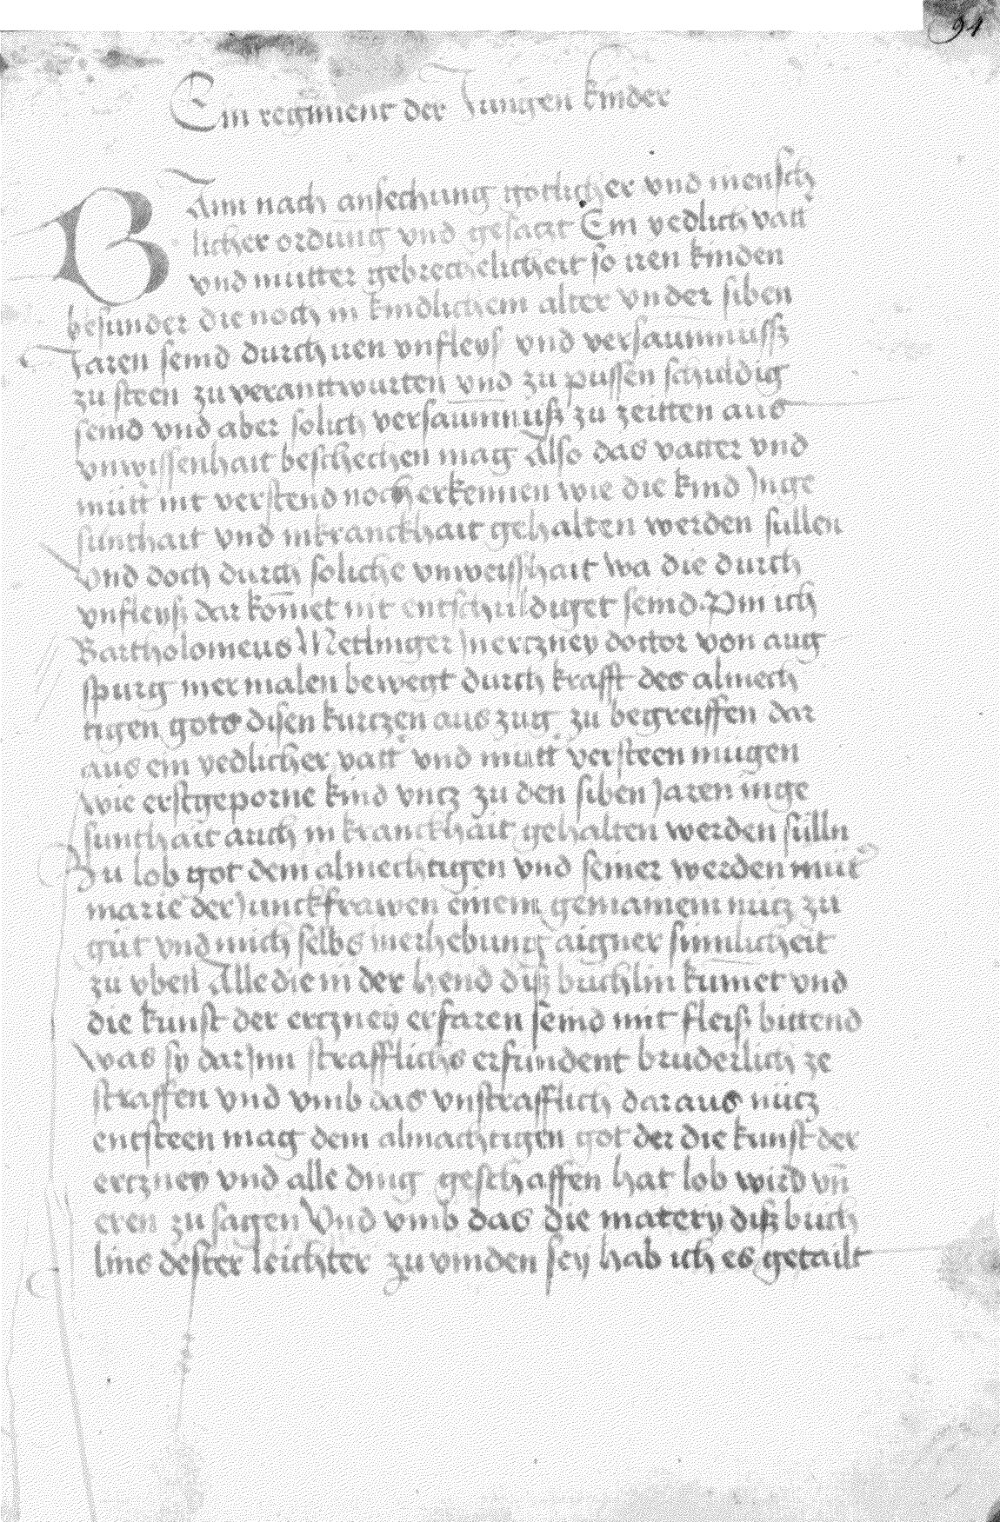 94
Ein regiment der Jungen kinder
BAnn nach ansechung gotlicher vnd mensch
licher ordnung vnd gesaczt Ein yedlich vatt
vnd mutter gebrechelicheit so iren kinden
besunder die noch in kindlichem alter vnder siben
Jaren seind durch iren vnfleyß vnd versaumnussz
zu steen zu veranttwurten vnd zu pussen schuldig
seind vnd aber solich versaumnuß zu zeitten aus
vnwissenhait beschechen mag Also das vatter vnd
mütt nit verstend noch erkennen wie die kind Inge
sunthait vnd inkranckhait gehalten werden sullen
Vnd doch durch soliche vnweisshait wa die durch
vnfleyß dar komet nit entschuldiget seind Bin ich
Bartholomeus Metlinger Inerczney doctor von aug
spurg mermalen bewegt durch krafft des almech
tigen gots disen kurczen auszug zu begreiffen dar
aus ein yedlicher vatt vnd mutt versteen mugen
wie erstgeporne kind vntz zu den siben Jaren inge
sunthait auch in kranckhait gehalten werden sülln
Zu lob got dem almechtigen vnd seiner werden müt
marie der Junckfrawen einem gemainem nücz zu
güt vnd mich selbs inerhebung aigner sinnlicheit
zü vben Alle die in der hend diß buchlin kumet vnd
die kunst der erczney erfaren seind mit fleiß bittend
was sy darJnn strafflichs erfundent bruderlich ze
straffen vnd vmb das vnstrafflich daraus nücz
entsteen mag dem almachtigen got der die kunst der
erczney vnd alle ding geschaffen hat lob wird vn̄
eren zu sagen Vnd vmb das die matery diß buch
lins dester leichter zu vinden sey hab ich es getailt